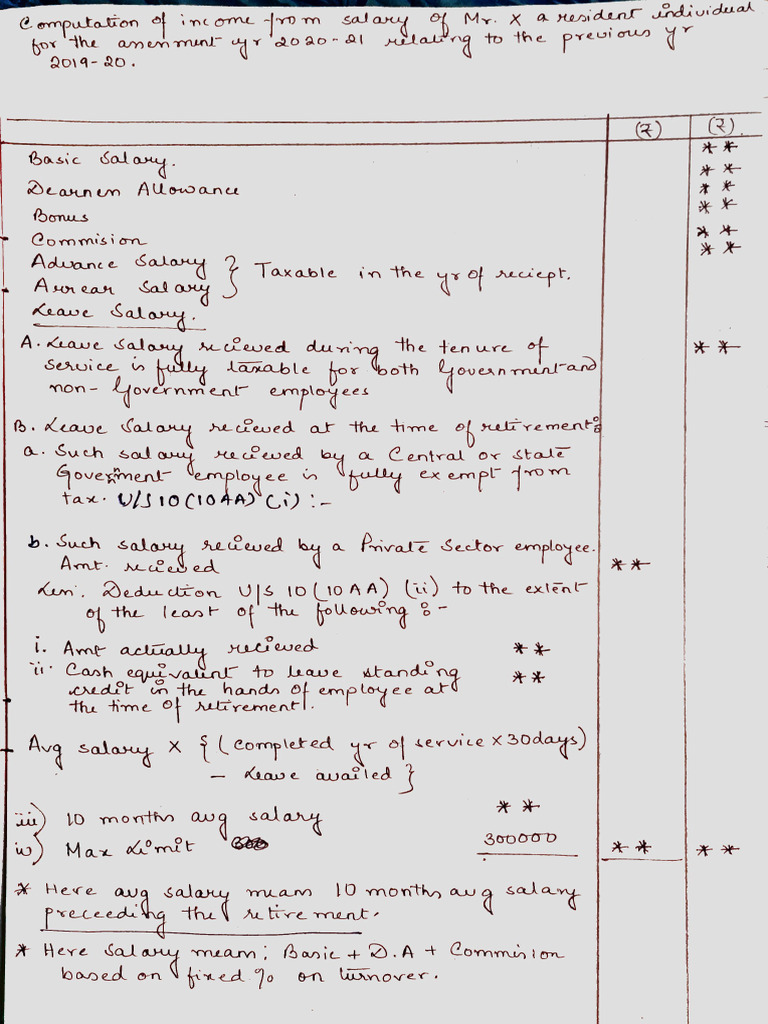 Computation of income from salary of Mr. X a resident individual
for the assessment yr 2020-21 relating to the previous yr
2019-20.
(₹) (₹)
Basic Salary. **
Dearness Allowance **
Bonus **
Commision **
Advance Salary **
Arrear Salary } Taxable in the yr of reciept. **
Leave Salary.
A. Leave Salary recieved during the tenure of **
service is fully taxable for both Government and
non-Government employees
B. Leave Salary recieved at the time of retirement:
a. Such salary recieved by a Central or State
Government employee is fully exempt from
tax. U/S 10(10AA)(i) :-
b. Such salary recieved by a Private Sector employee.
Amt. recieved **
Less: Deduction U/S 10(10AA)(ii) to the extent
of the least of the following :-
i. Amt actually recieved **
ii. Cash equivalent to leave standing **
credit in the hands of employee at
the time of retirement.
Avg salary X {(completed yr of service x 30days)
- Leave availed}
iii) 10 months avg salary **
iv) Max Limit 300000 ** **
* Here avg salary means 10 months avg salary
preceeding the retirement.
* Here Salary means; Basic + D.A + Commision
based on fixed % on turnover.